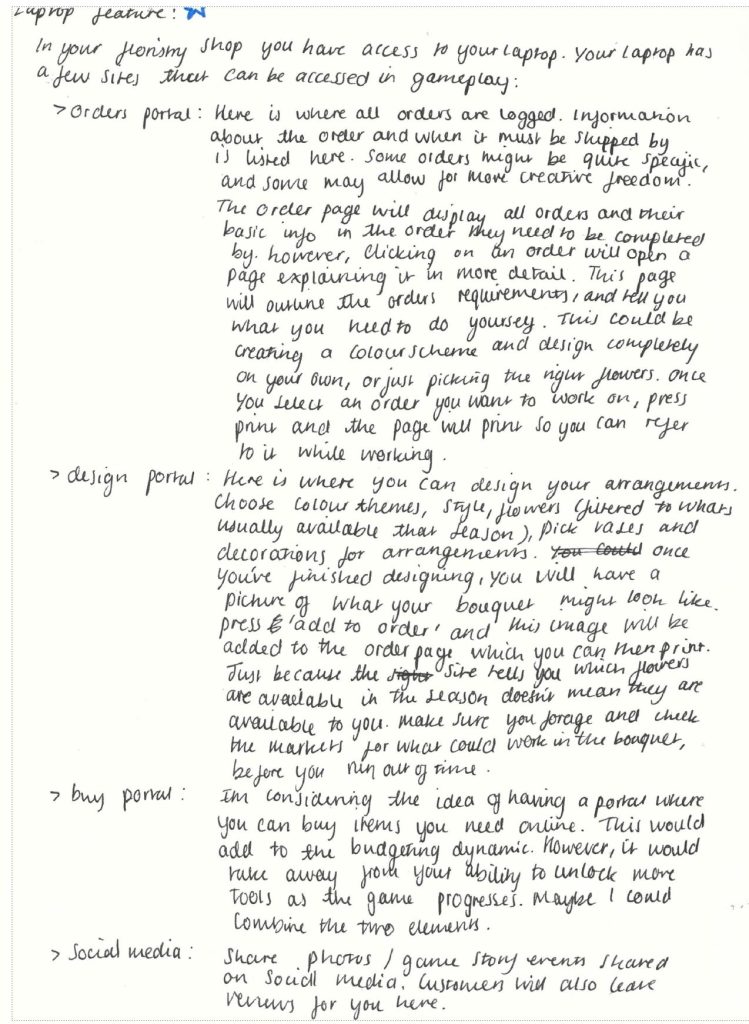 Laptop feature:
In your floristry shop you have access to your laptop. Your laptop has
a few sites that can be accessed in gameplay:
> Orders portal: Here is where all orders are logged. Information
about the order and when it must be shipped by
is listed here. Some orders might be quite specific,
and some may allow for more creative freedom.
The order page will display all orders and their
basic info in the order they need to be completed
by. however, clicking on an order will open a
page explaining it in more detail. This page
will outline the orders requirements, and tell you
what you need to do yourself. This could be
creating a colour scheme and design completely
on your own, or just picking the right flowers. once
you select an order you want to work on, press
print and the page will print so you can refer
to it while working.
> design portal: Here is where you can design your arrangements.
Choose colour themes, style, flowers (filtered to whats
usually available that season), pick vases and
decorations for arrangements. You could once
you've finished designing, you will have a
picture of what your bouquet might look like.
press 'add to order' and this image will be
added to the order page which you can then print.
Just because the site tells you which flowers
are available in the season doesn't mean they are
available to you. make sure you forage and check
the markets for what could work in the bouquet,
before you run out of time.
> buy portal: Im considering the idea of having a portal where
you can buy items you need online. This would
add to the budgeting dynamic. However, it would
take away from your ability to unlock more
tools as the game progresses. Maybe I could
combine the two elements.
> Social media: Share photos / game story events shared
on social media. Customers will also leave
reviews for you here.